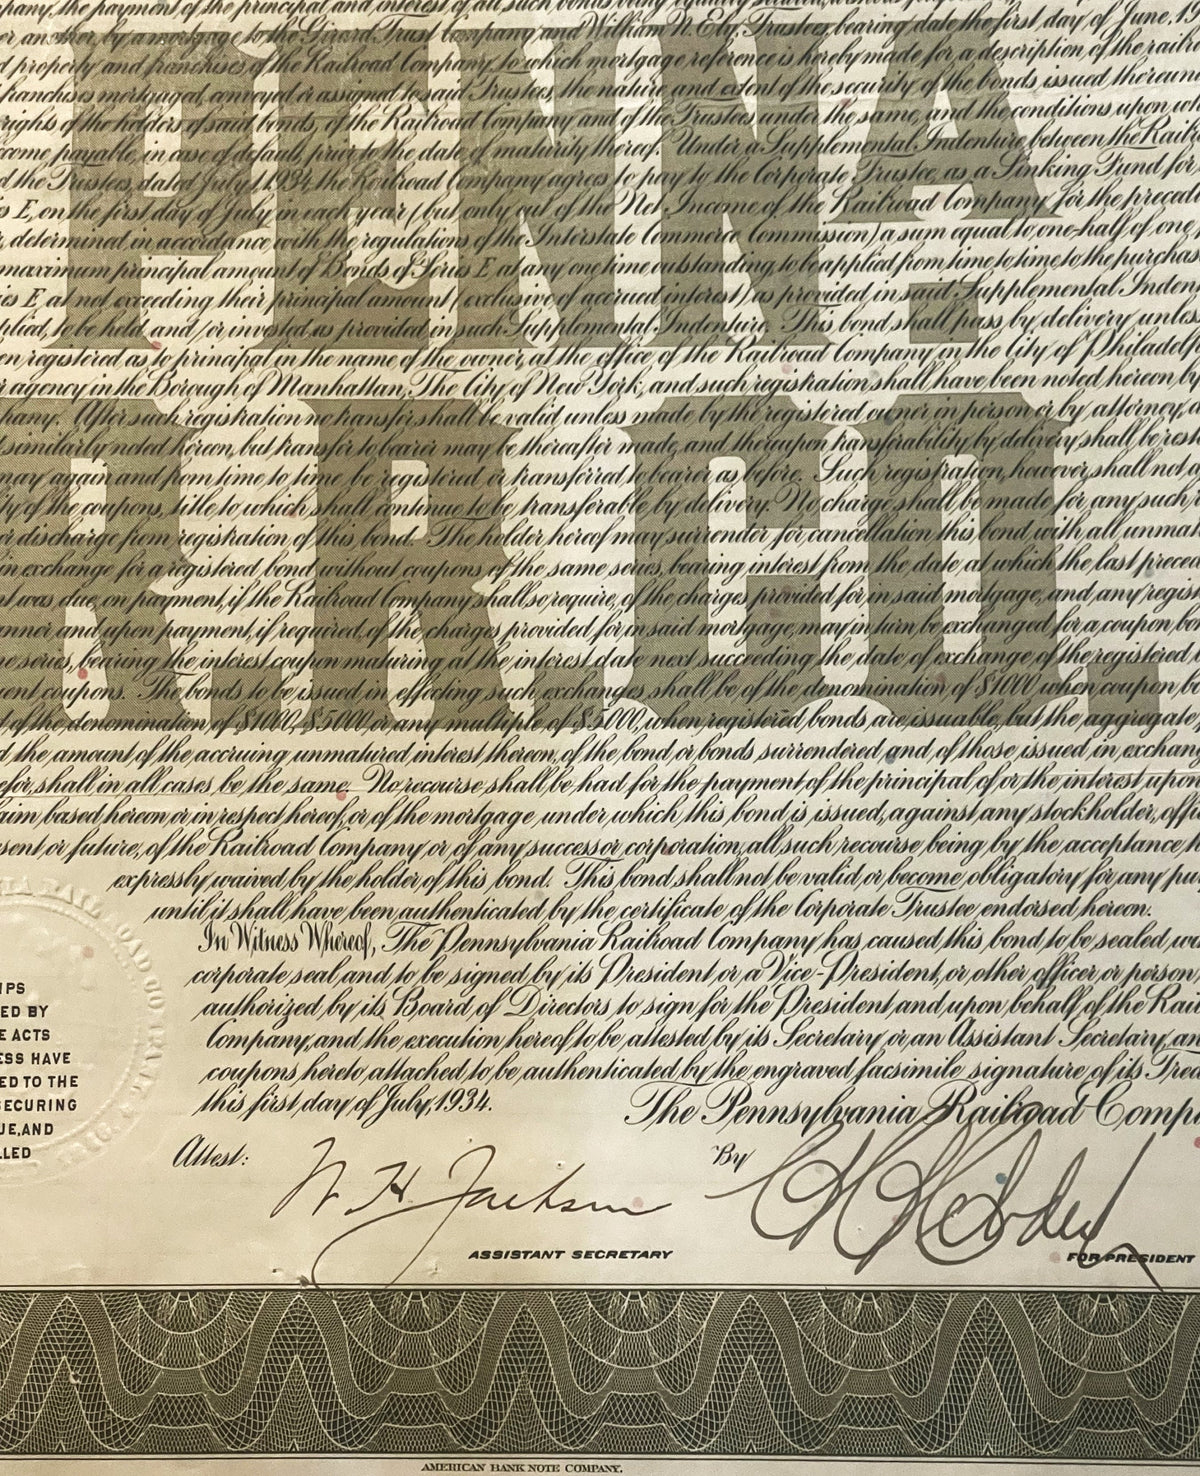 pany, the payment of the principal and interest of all such bonds being equally secured, without
er another, by a mortgage to the Girard Trust Company and William N. Ely, Trustees, bearing date the first day of June, 19
d property and franchises of the Railroad Company, to which mortgage reference is hereby made for a description of the railro
franchises mortgaged, conveyed or assigned to said Trustees, the nature and extent of the security of the bonds issued thereun
rights of the holders of said bonds, of the Railroad Company and of the Trustees under the same, and the conditions upon wh
come payable, in case of default, prior to the date of maturity thereof. Under a Supplemental Indenture between the Railr
d the Trustees, dated July 1, 1934, the Railroad Company agrees to pay to the Corporate Trustee, as a Sinking Fund for
s E, on the first day of July in each year (but only out of the Net Income of the Railroad Company for the precedi
, determined in accordance with the regulations of the Interstate Commerce Commission) a sum equal to one-half of one
maximum principal amount of Bonds of Series E at any one time outstanding, to be applied from time to time to the purchas
ies E at not exceeding their principal amount (exclusive of accrued interest) as provided in said Supplemental Inden
plied, to be held and/or invested as provided in such Supplemental Indenture. This bond shall pass by delivery unless
en registered as to principal in the name of the owner, at the office of the Railroad Company in the City of Philadelp
r agency in the Borough of Manhattan, The City of New York, and such registration shall have been noted hereon by
pany. After such registration no transfer shall be valid unless made by the registered owner in person or by attorney, a
similarly noted hereon, but transfer to bearer may be thereafter made, and thereupon transferability by delivery shall be rest
may again and from time to time be registered or transferred to bearer as before. Such registration, however, shall not a
ty of the coupons, title to which shall continue to be transferable by delivery. No charge shall be made for any such
or discharge from registration of this bond. The holder hereof may surrender for cancellation this bond with all unmat
in exchange for a registered bond without coupons of the same series, bearing interest from the date at which the last preced
t was due, on payment, if the Railroad Company shall so require, of the charges provided for in said mortgage, and, any regist
anner and upon payment, if required, of the charges provided for in said mortgage, may in turn be exchanged for a coupon bon
e series, bearing the interest coupon maturing at the interest date next succeeding the date of exchange of the registered
uent coupons. The bonds to be issued in effecting such exchanges shall be of the denomination of $1000 when coupon bo
d of the denomination of $1000, $5000 or any multiple of $5000, when registered bonds are issuable, but the aggregate
d the amount of the accruing unmatured interest thereon, of the bond or bonds surrendered and of those issued in exchang
efor, shall in all cases be the same. No recourse shall be had for the payment of the principal of or the interest upon
aim based hereon or in respect hereof, or of the mortgage under which this bond is issued, against any stockholder, offic
sent or future, of the Railroad Company or of any successor corporation, all such recourse being by the acceptance h
expressly waived by the holder of this bond. This bond shall not be valid or become obligatory for any pur
until it shall have been authenticated by the certificate of the Corporate Trustee endorsed hereon.
In Witness Whereof, The Pennsylvania Railroad Company has caused this bond to be sealed wi
corporate seal, and to be signed by its President or a Vice-President, or other officer or person,
authorized by its Board of Directors to sign for the President and upon behalf of the Rail
Company, and the execution hereof to be attested by its Secretary or an Assistant Secretary, an
coupons hereto attached, to be authenticated by the engraved facsimile signature of its Trea
this first day of July, 1934.
The Pennsylvania Railroad Compa
PENNA
R.R.CO.
IPS
ED BY
E ACTS
ESS HAVE
ED TO THE
SECURING
UE, AND
LLED
Attest: W H Jackson
ASSISTANT SECRETARY
By
FOR PRESIDENT
AMERICAN BANK NOTE COMPANY.